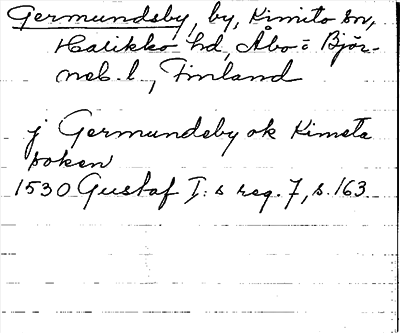 Germundsby, by, Kimito sn,
Halikko hd, Åbo = Björ-
neb. l., Finland
j Germundsby ok Kimeta
soken
1530 Gustaf I:s reg. 7, s. 163